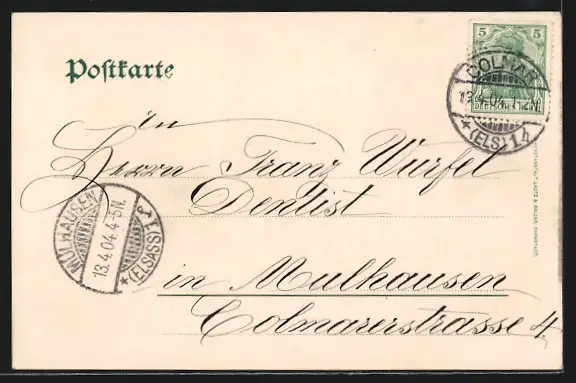 Postkarte
5 5
DEUTSCHES REICH
COLMAR
13.4.04.
*(ELS)1h
An
Herrn Franz Würfel
Dentist
in Mulhausen
Colmarerstrasse 4
MÜLHAUSEN
13.4.04.4-5N.
*(ELSASS)1f